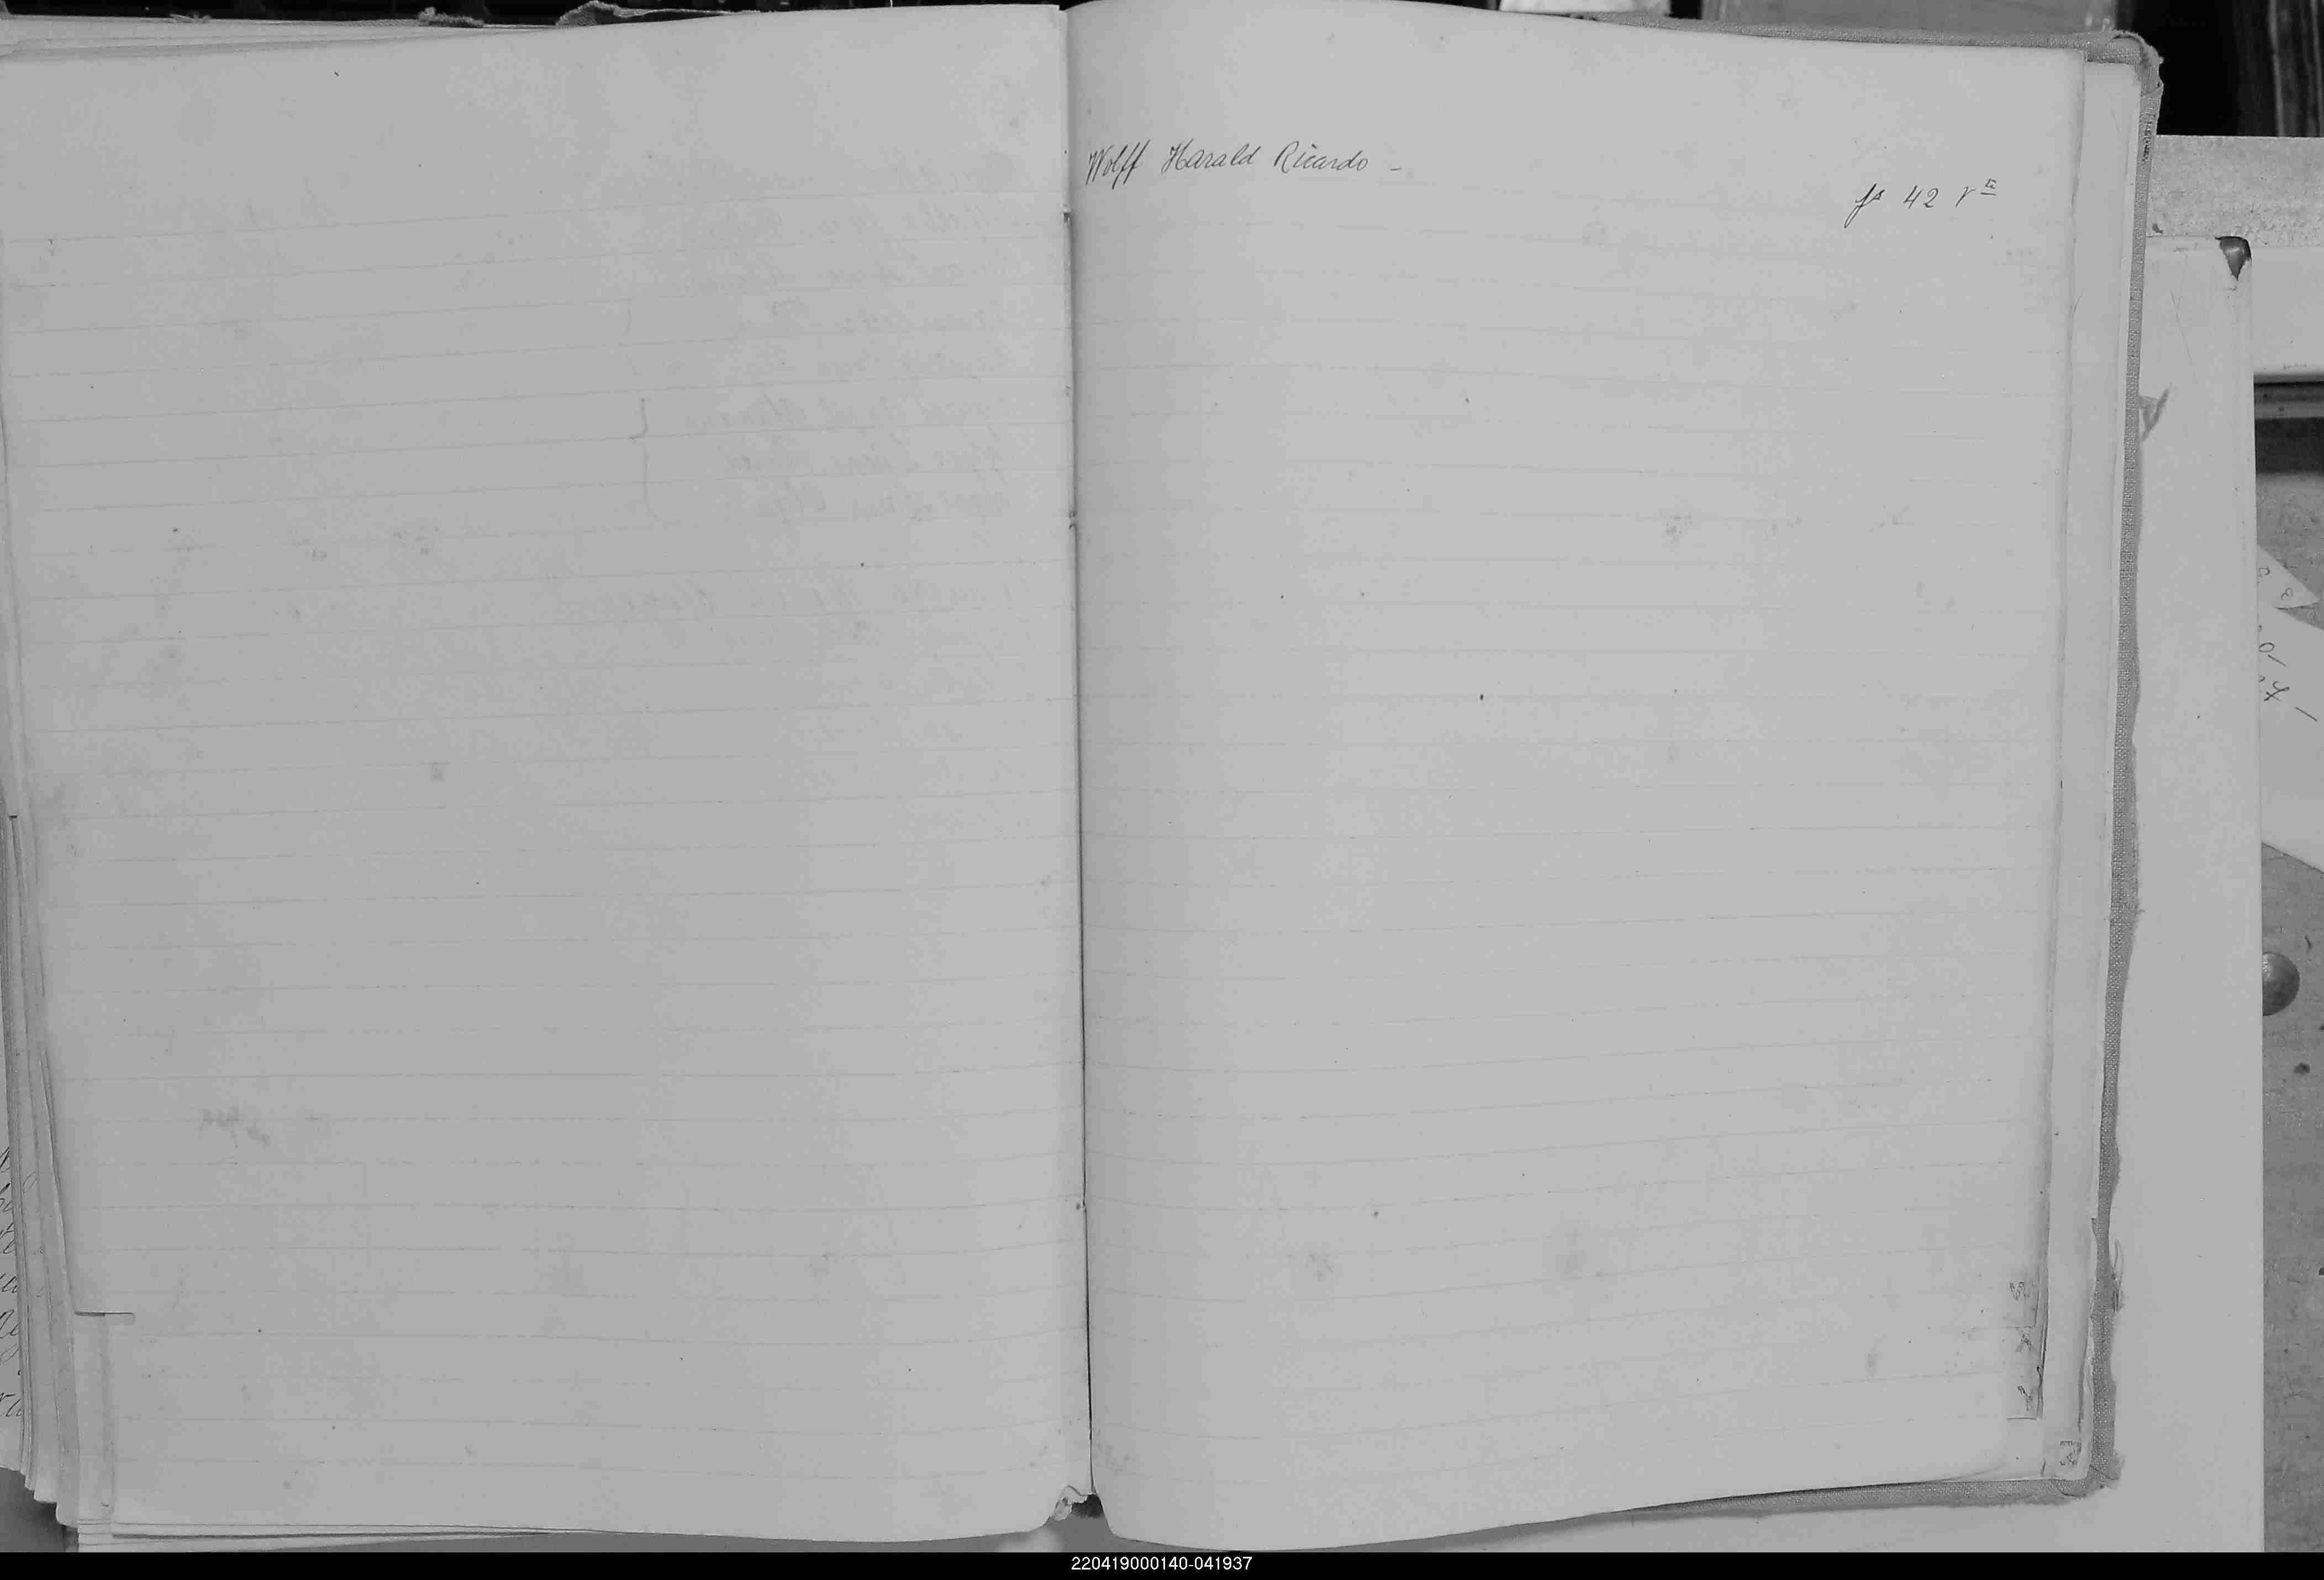 Wolff Harald Ricardo -
fs 42 vta
220419000140-041937